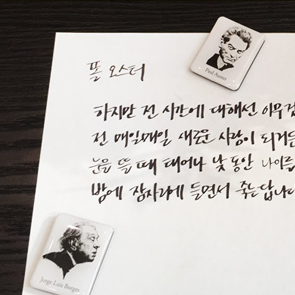 폴 오스터
Paul Auster
하지만 전 시간에 대해선 아무것
전 매일매일 새로운 사람이 되거든
눈을 뜰 때 태어나 낮 동안 나이를
밤에 잠자리에 들면서 죽는답니다
Jorge Luis Borges